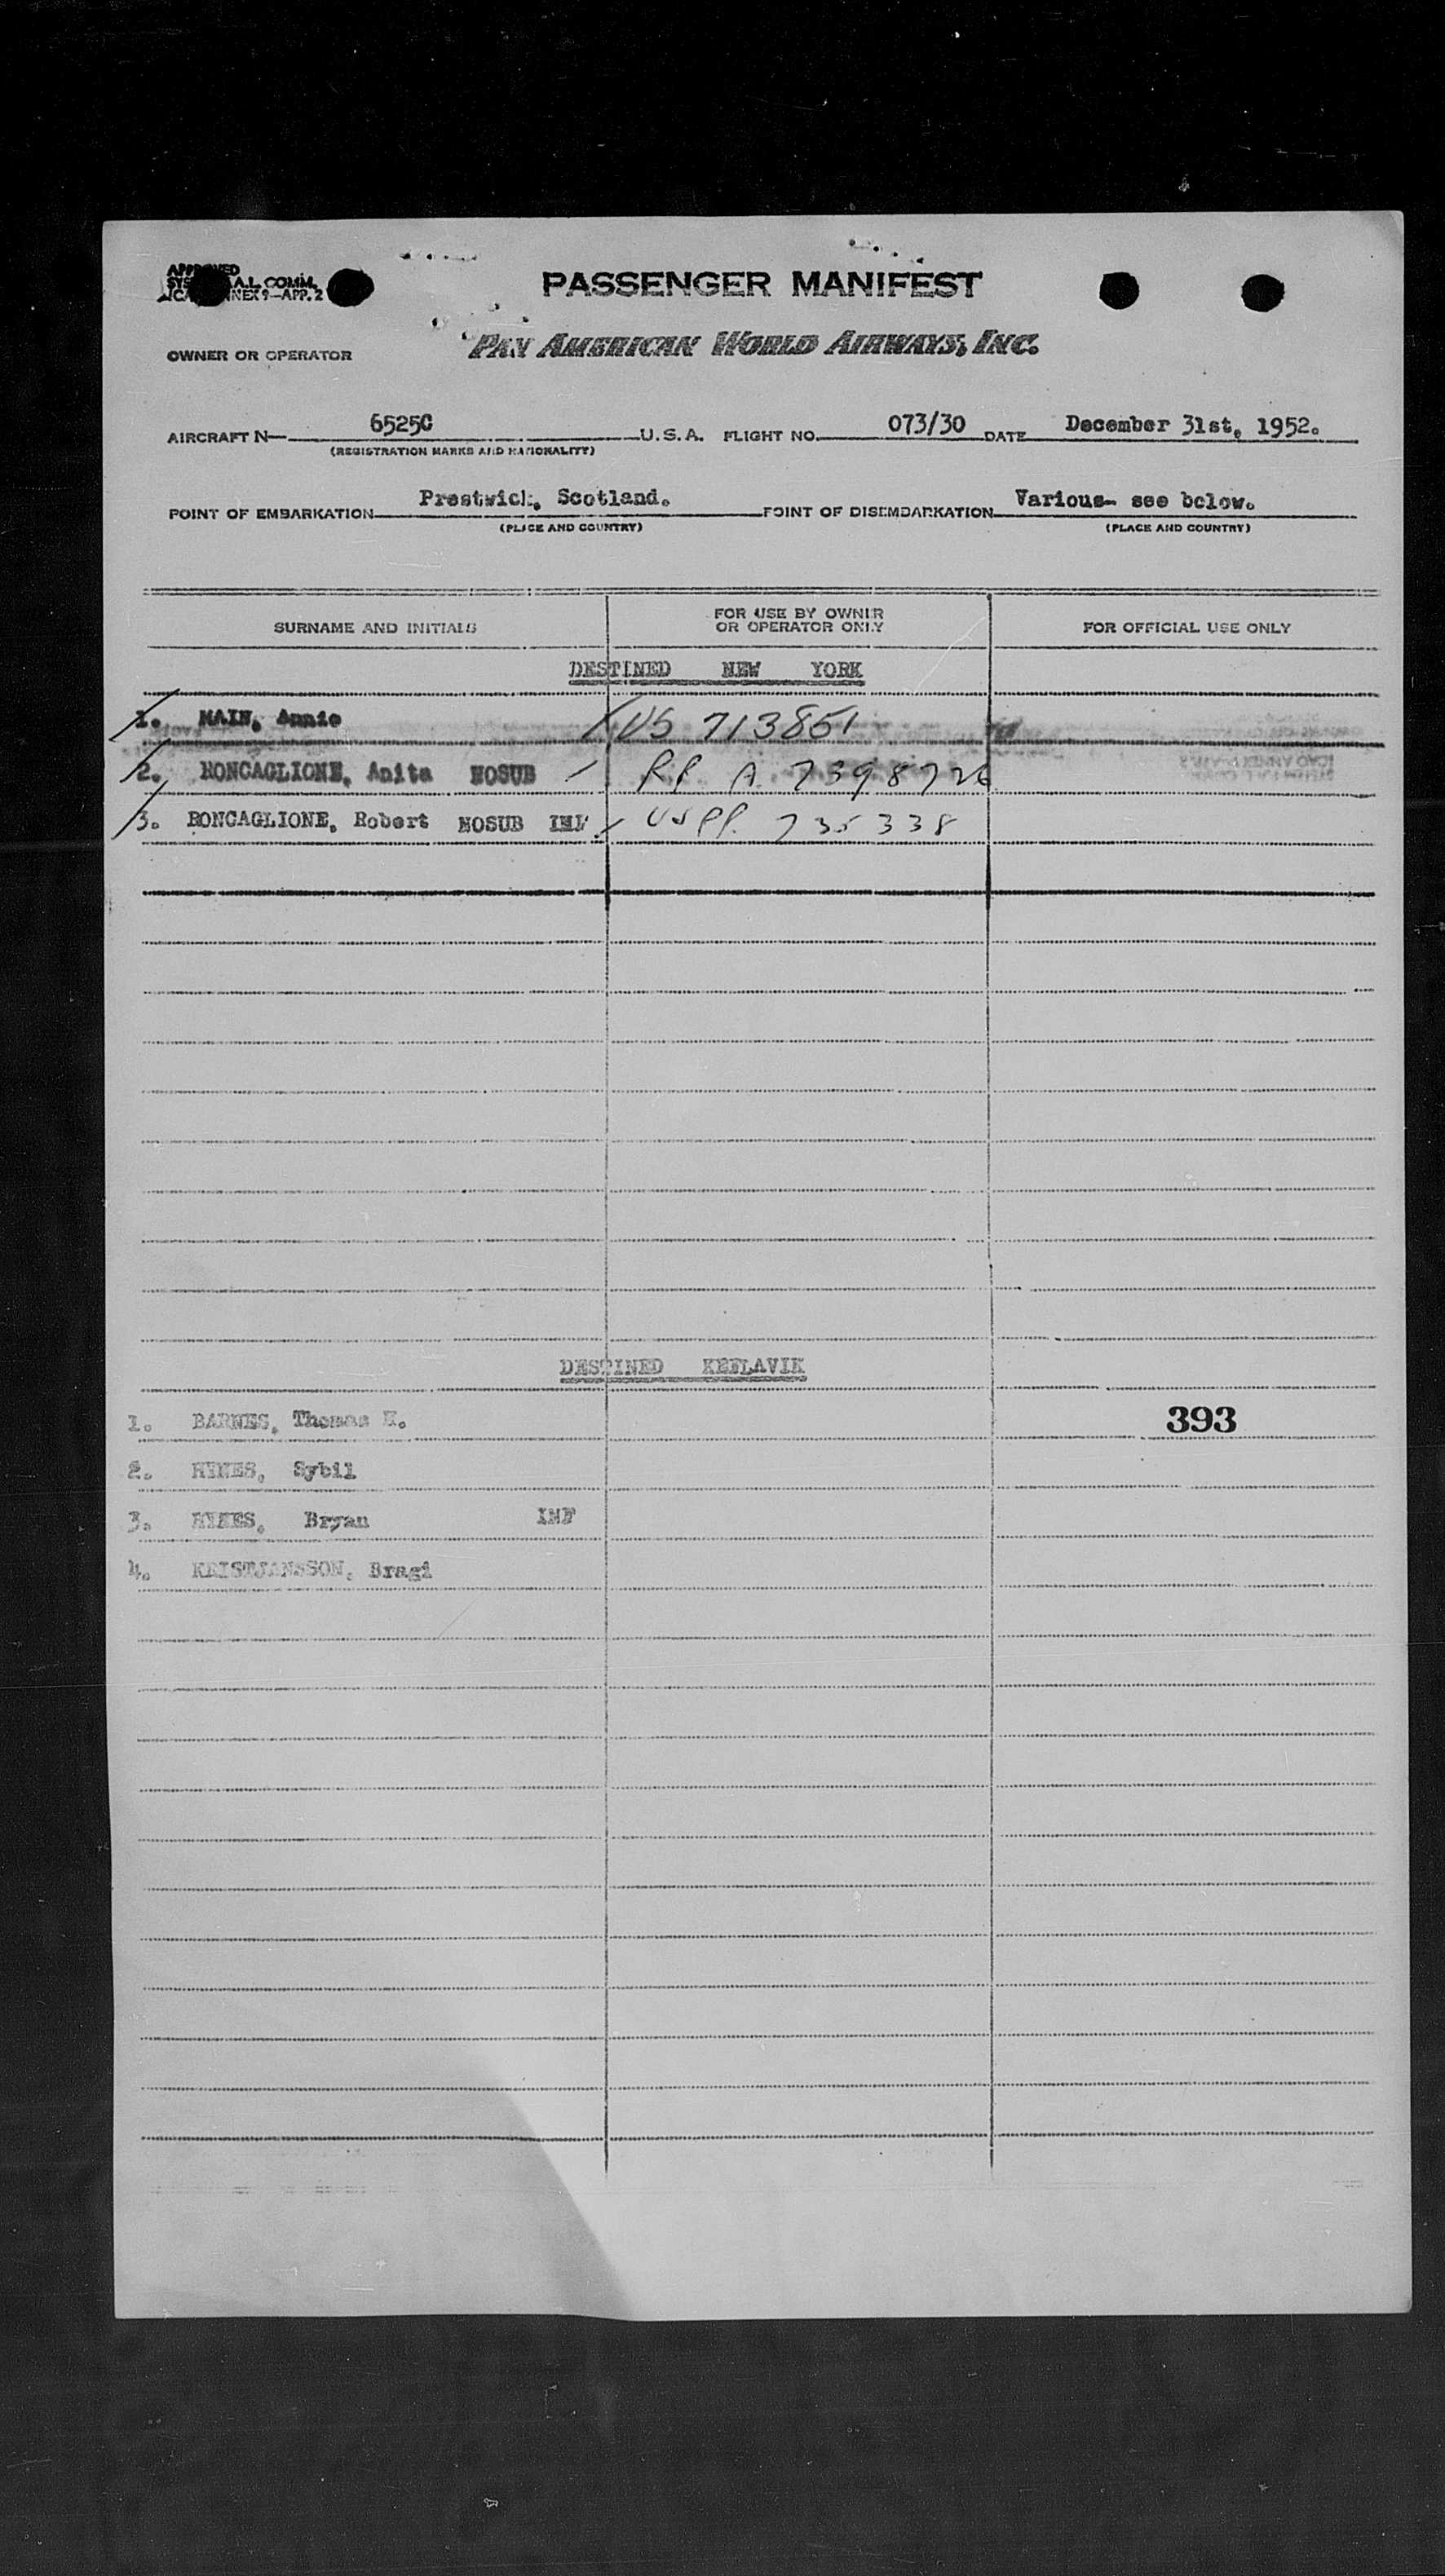 PASSENGER MANIFEST
OWNER OR OPERATOR PAN AMERICAN WORLD AIRWAYS, INC.
AIRCRAFT N— 6525C U.S.A. FLIGHT NO. 073/30 DATE December 31st, 1952.
(REGISTRATION MARKS AND NATIONALITY)
POINT OF EMBARKATION Prestwick, Scotland. POINT OF DISEMBARKATION Various- see below.
(PLACE AND COUNTRY) (PLACE AND COUNTRY)
SURNAME AND INITIALS FOR USE BY OWNER OR OPERATOR ONLY FOR OFFICIAL USE ONLY
DESTINED NEW YORK
1. MAIN, Annie US 713851
2. RONCAGLIONE, Anita NOSUB RP A 7398726
3. RONCAGLIONE, Robert NOSUB INF US PP. 735338
DESTINED KEFLAVIK
1. BARNES, Thomas 393
2. HYNES, Sybil
3. HYNES, Bryan INF
4. KRISTJANSSON, Bragi